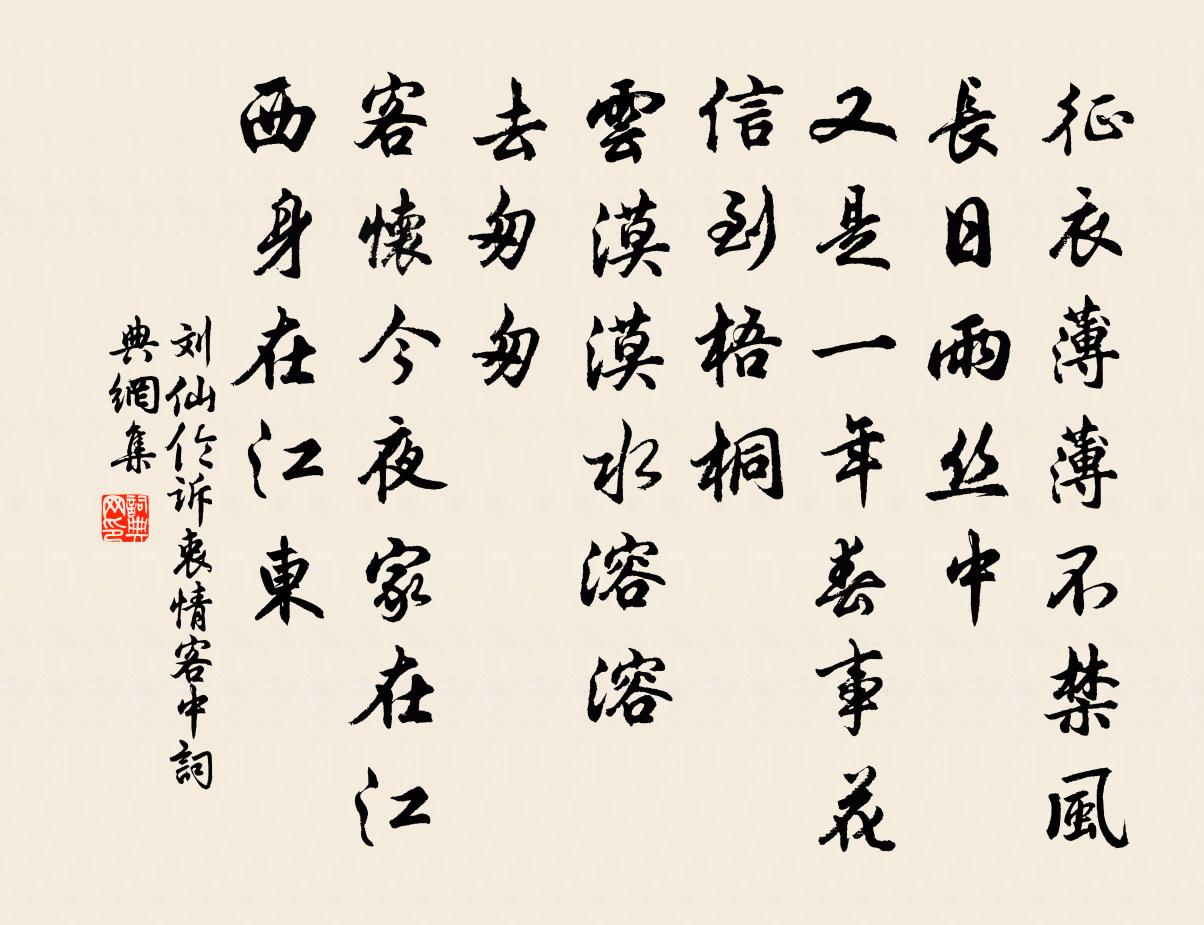 征衣薄薄不禁風
長日雨丝中
又是一年春事花
信到梧桐
雲漠漠水溶溶
去匆匆
客懷今夜家在江
西身在江東
刘仙伦诉衷情客中詞
典網集
詞典
网印